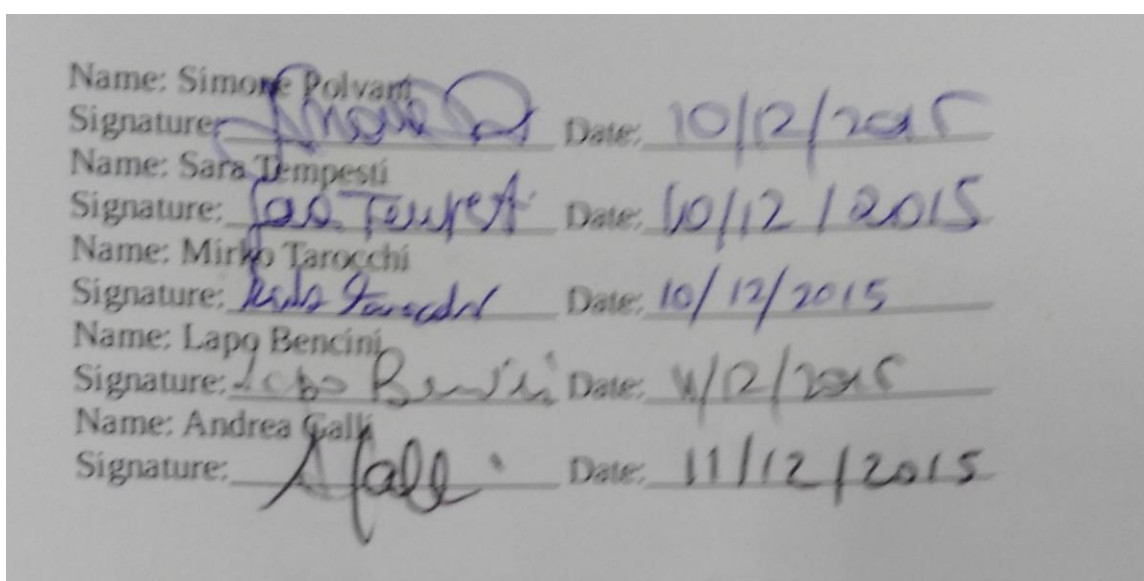 Name: Simone Polvani
Signature: Simone P Date: 10/12/2015
Name: Sara Tempesti
Signature: Sara Tempesti Date: 10/12/2015
Name: Mirko Tarocchi
Signature: Mirko Tarocchi Date: 10/12/2015
Name: Lapo Bencini
Signature: Lapo Bencini Date: 11/12/2015
Name: Andrea Galli
Signature: A Galli Date: 11/12/2015